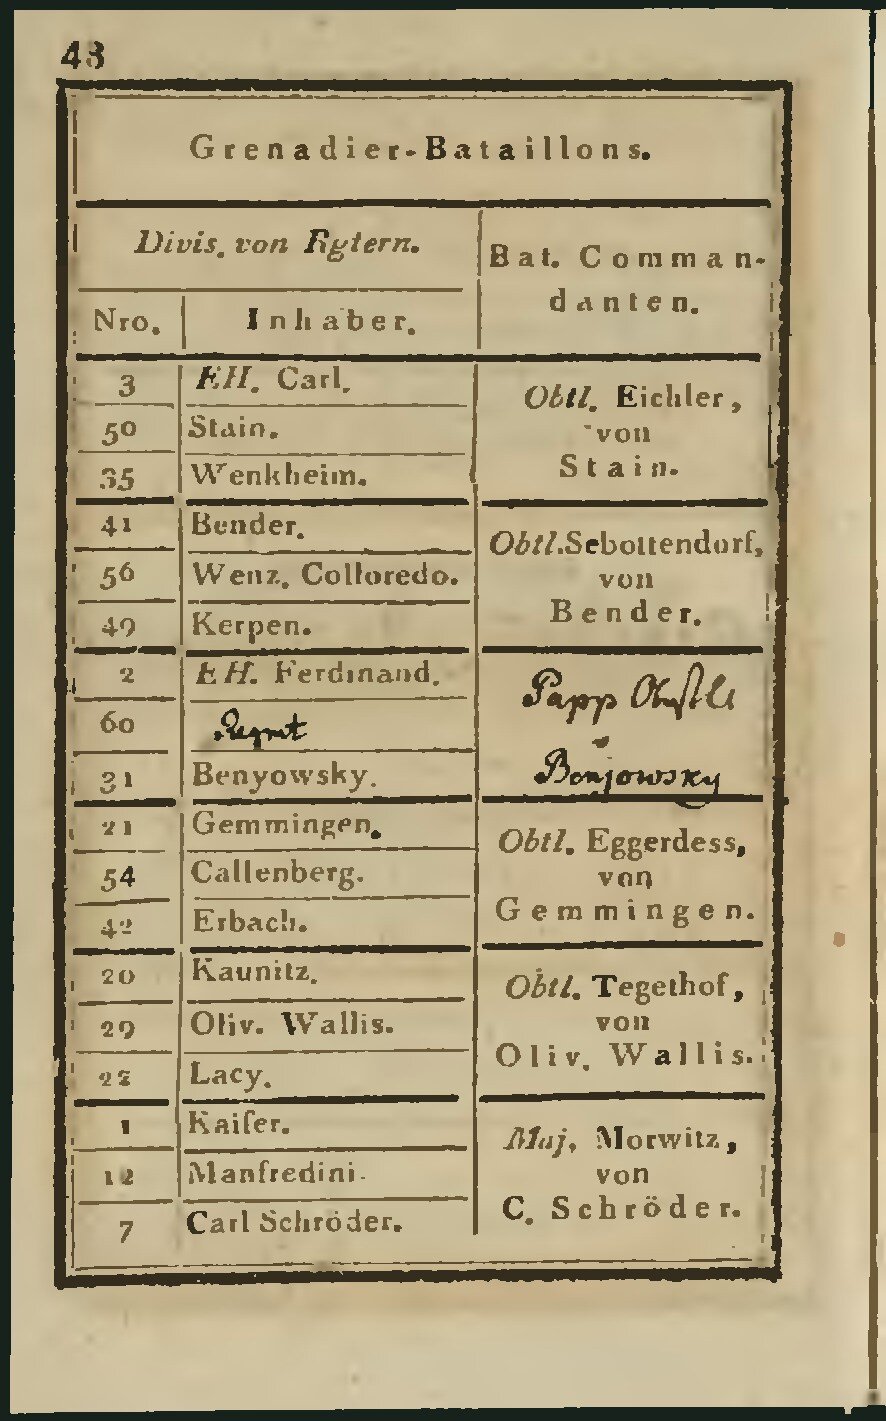 48
Grenadier-Bataillons.
Divis. von Rgtern.
Bat. Comman-
danten.
Nro. Inhaber.
3 EH. Carl.
50 Stain.
35 Wenkheim.
Obtl. Eichler,
von
Stain.
41 Bender.
56 Wenz. Colloredo.
49 Kerpen.
Obtl. Sebottendorf,
von
Bender.
2 EH. Ferdinand.
60
31 Benyowsky.
Papp Obristl
v
Benjowsky
21 Gemmingen.
54 Callenberg.
42 Erbach.
Obtl. Eggerdess,
von
Gemmingen.
20 Kaunitz.
29 Oliv. Wallis.
22 Lacy.
Obtl. Tegethof,
von
Oliv. Wallis.
1 Kaiſer.
12 Manfredini.
7 Carl Schröder.
Maj. Morwitz,
von
C. Schröder.